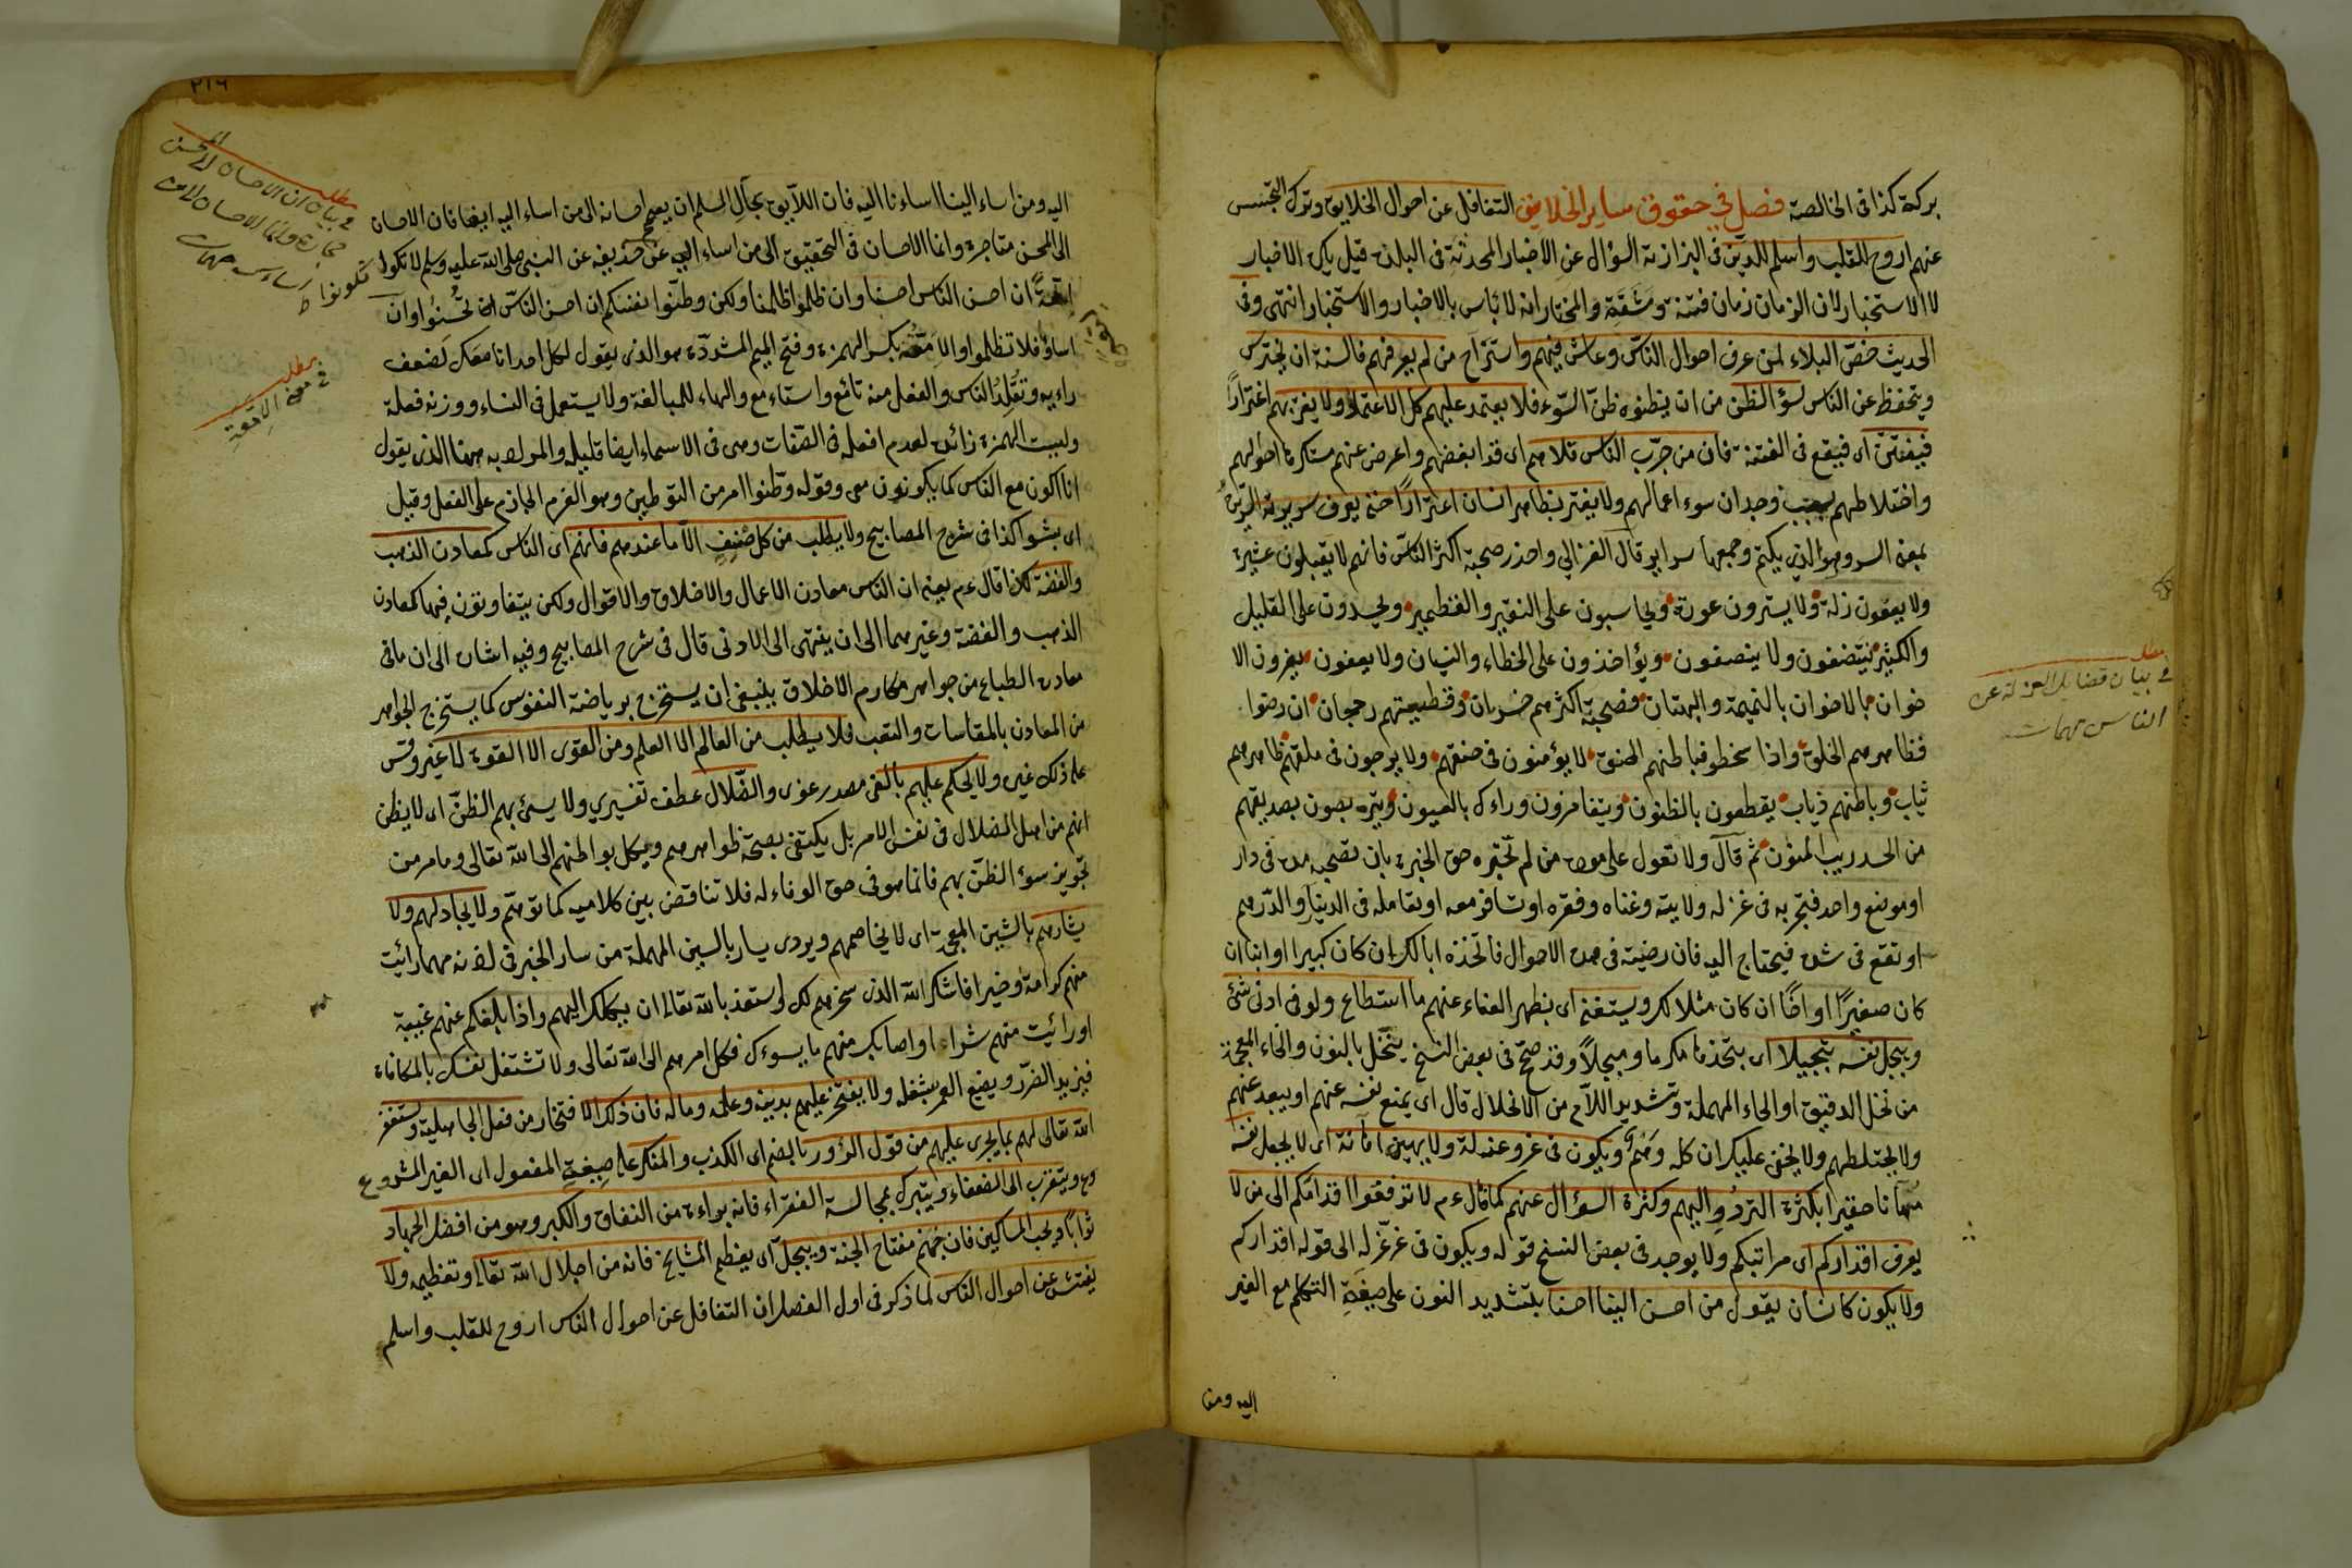 بركة كذا فى الخالصة فصل في حقوق ساير الخلايق التغافل عن احوال الخلايق وترك التجسس
عنهم اروح للقلب واسلم للدين فى البزازية السؤال عن الاخبار المحدثة فى البلدة قيل يكره الاخبار
لا الاستخبار لان الزمان زمان فتنة ومشقة والمختار انه لا باس بالاخبار والاستخبار انتهى وفى
الحديث خص البلاء لمن عرف احوال الناس وعاش فيهم واستراح من لم يعرفهم فالسنة ان يحترس
ويتحفظ عن الناس لسؤ الظن من ان يظنوه ظن السوء فلا يعتمد عليهم كل الاعتماد ولا يغتر بهم اغترارًا
فيفتتن اى فيقع فى الفتنة فان من جرب الناس قلاهم اى قد ابغضهم واعرض عنهم مستكرها احوالهم
واختلاطهم بسبب وجدان سوء اعمالهم ولا يغتر بظاهر انسان اغترارًا حتى يعرف سريرته السريرة
بمعنى السر وهو الذي يكتم وجمعها سراير قال الغزالي واحذر صحبة اكثر الناس فانهم لا يقبلون عثرة
ولا يعفون زلة ولا يسترون عورة ويحاسبون على النقير والقطمير ويحسدون على القليل
والكثير ينتصفون ولا ينصفون ويؤاخذون على الخطاء والنسيان ولا يعفون يغرون الا
خوان بالاخوان بالنميمة والبهتان فصحبة اكثرهم خسران وقطيعتهم رجحان ان رضوا
فظاهرهم الخلق واذا سخطو فباطنهم الحنق لا يؤمنون فى حنقهم ولا يرجون فى ملقهم ظاهرهم
ثياب وباطنهم ذياب يقطعون بالظنون ويتغامزون وراءك بالعيون ويتربصون بصديقهم
من الحسد ريب المنون ثم قال ولا تعول على مودة من لم تختبره حق الخبرة بان تصحبه مدة فى دار
او موضع واحد فتجربه فى عزله ولايته وغناه وفقره او تسافر معه او تعامله فى الدينار والدرهم
او تقع فى شدة فيحتاج اليه فان رضيته فى هذه الاحوال فاتخذه ابا لك ان كان كبيرا او ابنا ان
كان صغيرًا او اخًا ان كان مثلا لك ويستغنى اى يظهر الغناء عنهم ما استطاع ولو فى ادنى شئ
ويبجل نفسه تبجيلا اى يتخذها مكرما ومبجلاً وقد صح فى بعض النسخ يتنخل بالنون والخاء المعجمة
من نخل الدقيق او الحاء المهملة وتشديد اللام من الانحلال قال اى يمنع نفسه عنهم او يبعد عنهم
ولا يختلطهم ولا يخفى عليك ان كله ويكون فى عز وعزلة ولا يهين اى لا يجعل نفسه
مهانا حقيرا بكثرة التردد اليهم وكثرة السؤال عنهم كما قال ءم لا توقفوا اقدامكم الى من لا
يعرف اقداركم اى مراتبكم ولا يوجد فى بعض النسخ قوله ويكون فى عز عزله الى قوله اقداركم
ولا يكون كانسان يقول من احسن الينا احسنا بتشديد النون على صيغة التكلم مع الغير
اليه ومن
مطلب
فى بيان فضايل العزلة عن
الناس
٢١٦
اليه ومن اساء الينا اساءنا اليه فان اللآيق بحآل المسلم ان يعمم احسانه الى من اساء اليه ايضا فان الاحسان
الى المحسن متاجرة وانما الاحسان فى التحقيق الى من اساء اليه عن حذيفه عن النبى صلى الله عليه وسلم لا تكونوا
امعةً ان احسن الناس احسنا وان ظلموا ظلمنا ولكن وطنوا نفسكم ان احسن الناس ان تحسنوا وان
اساؤا فلا تظلموا والامعة بكسر الهمزة وفتح الميم المشددة هو الذى يقول لكل احد انا معك لضعف
رايه وتقلد الناس والفعل منه تائمع واستاءمع والهاء للمبالغة ولا يستعمل فى النساء ووزنه فعلة
وليست الهمزة زائدة لعدم افعلة فى الصفات وهى فى الاسماء ايضا قليلة والمراد به ههنا الذى يقول
انا اكون مع الناس كما يكونون معى وقوله وطنوا امر من التوطين وهو العزم الجازم على الفعل وقيل
اى بشوا كذا فى شرح المصابيح ولا يطلب من كل صنف الا ما عندهم فانهم اى الناس كمعادن الذهب
والفضة كذا قال ءم يعنى ان الناس معادن الاعمال والاخلاق والاقوال ولكن يتفاوتون فيها كمعادن
الذهب والفضة وغيرهما الى ان ينتهى الى الادنى قال فى شرح المصابيح وفيه اشارة الى ان ما فى
معادن الطباع من جواهر مكارم الاخلاق ينبغى ان يستخرج برياضة النفوس كما يستخرج الجواهر
من المعادن بالمقاسات والتعب فلا يطلب من العالم الا العلم ومن القوى الا القوة لا غير وقس
على ذلك غيره ولا يحكم عليهم بالغى مصدر غوى والضلال عطف تفسيري ولا يسئ بهم الظن اى لا يظن
انهم من اهل الضلال فى نفس الامر بل يكتفى بصحة ظواهرهم ويكل بواطنهم الى الله تعالى وما مر من
تجويز سوء الظن بهم فانما هو فى حق الوفاء له فلا تناقض بين كلاميه كما توهم ولا يجادلهم ولا
يشارهم بالشين المعجمة اى لا يخاصمهم ويروى يسار بالسين المهملة من سار الخبر فى لانه مهما رائيت
منهم كرامة وخيرا فاشكر الله الذى سخرهم لك واستعذ بالله تعالى ان يكلك اليهم واذا بلغكم عنهم غيبة
او رائيت منهم شرا، او اصابك منهم ما يسوءك فكل امرهم الى الله تعالى ولا تشتغل نفسك بالمكافاة
فيزيد الضرر ويضيع العمر بشغله ولا يفتخر عليهم بدينه وعلمه وماله فان ذلك الافتخار من فعل الجاهلية ويستغفر
الله تعالى لهم بما يجرى عليهم من قول الزور بالضم اى الكذب والمنكر على صيغة المفعول اى الغير المشروع
ويتقرب الى الضعفاء ويتبرك بمجالسة الفقراء فانه براءة من النفاق والكبر وهو من افضل الجهاد
ثوابًا ويحب المساكين فان حبهم مفتاح الجنة ويبجل اى يعظم المشايخ فانه من اجلال الله تعالى وتعظيمه ولا
يفتش عن احوال الناس لما ذكر فى اول الفصل ان التغافل عن احوال الناس اروح للقلب واسلم
مطلب
فى بيان ان الاحسان الى المحسن
مطلب
فى معنى الامعة